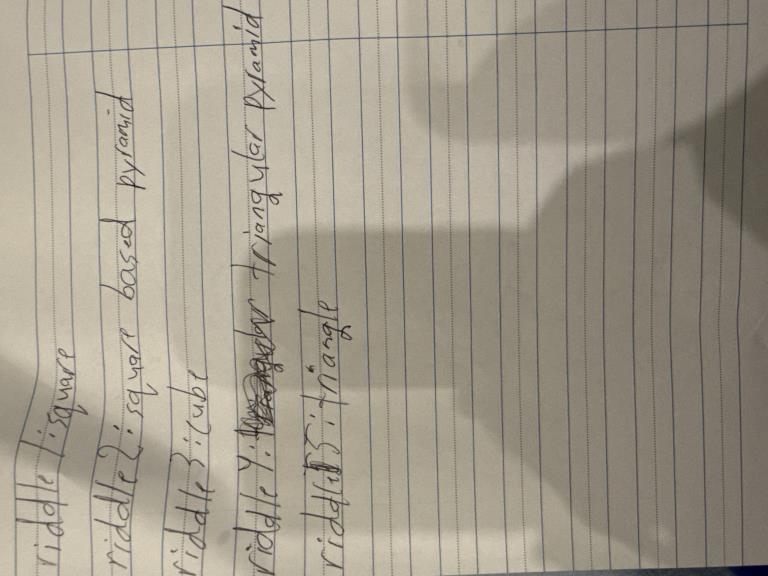 riddle 1: square
riddle 2: square based pyramid
riddle 3: cube
riddle 4: triangular pyramid
riddle 5: triangle